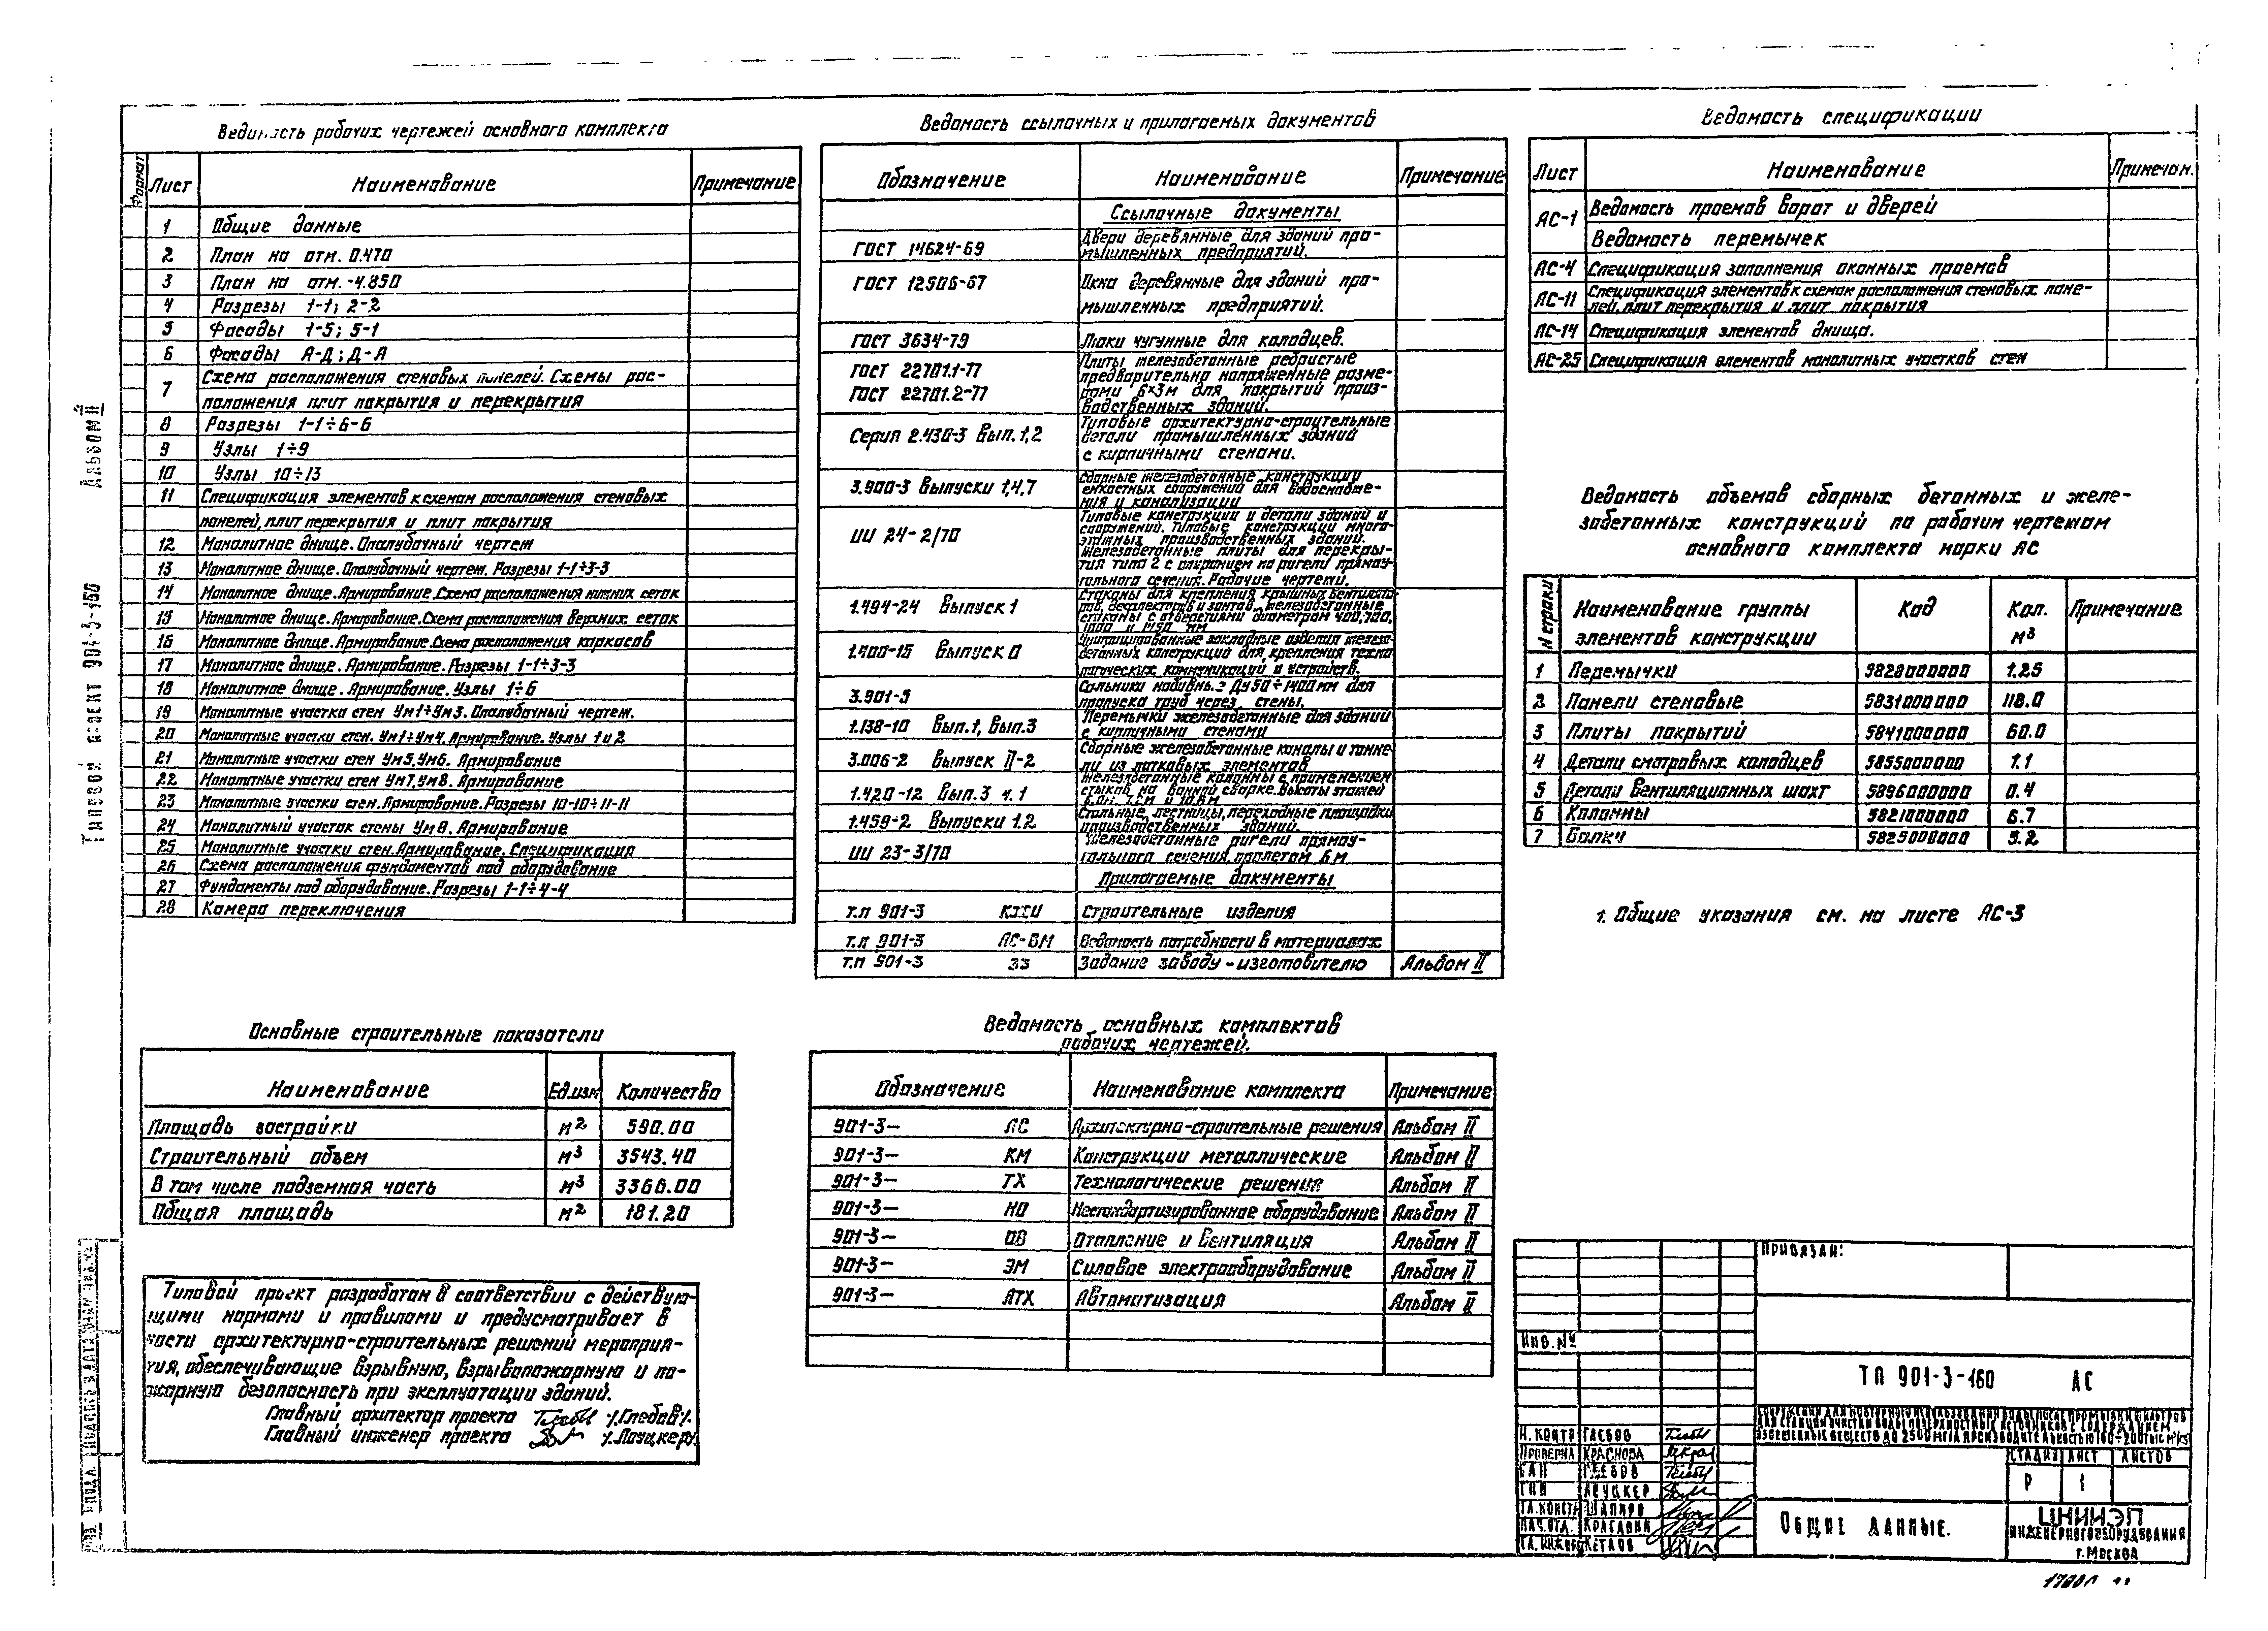 Ведомость рабочих чертежей основного комплекта
Формат Лист Наименование Примечание
1 Общие данные
2 План на отм. 0.470
3 План на отм. -4.850
4 Разрезы 1-1; 2-2
5 Фасады 1-5; 5-1
6 Фасады А-Д; Д-А
7 Схема расположения стеновых панелей. Схемы рас-
положения плит покрытия и перекрытия
8 Разрезы 1-1÷6-6
9 Узлы 1÷9
10 Узлы 10÷13
11 Спецификация элементов к схемам расположения стеновых
панелей, плит перекрытия и плит покрытия
12 Монолитное днище. Опалубочный чертеж
13 Монолитное днище. Опалубочный чертеж. Разрезы 1-1÷3-3
14 Монолитное днище. Армирование. Схема расположения нижних сеток
15 Монолитное днище. Армирование. Схема расположения верхних сеток
16 Монолитное днище. Армирование. Схема расположения каркасов
17 Монолитное днище. Армирование. Разрезы 1-1÷3-3
18 Монолитное днище. Армирование. Узлы 1÷6
19 Монолитные участки стен Ум1÷Ум3. Опалубочный чертеж.
20 Монолитные участки стен. Ум1÷Ум4. Армирование. Узлы 1 и 2
21 Монолитные участки стен Ум5, Ум6. Армирование
22 Монолитные участки стен Ум7, Ум8. Армирование
23 Монолитные участки стен. Армирование. Разрезы 10-10÷11-11
24 Монолитный участок стены Ум8. Армирование
25 Монолитные участки стен. Армирование. Спецификация
26 Схема расположения фундаментов под оборудование
27 Фундаменты под оборудование. Разрезы 1-1÷4-4
28 Камера переключения
Основные строительные показатели
Наименование Ед.изм Количество
Площадь застройки м² 590.00
Строительный объем м³ 3543.40
В том числе подземная часть м³ 3366.00
Общая площадь м² 181.20
Типовой проект разработан в соответствии с действую-
щими нормами и правилами и предусматривает в
части архитектурно-строительных решений мероприя-
тия, обеспечивающие взрывную, взрывопожарную и по-
жарную безопасность при эксплуатации зданий.
Главный архитектор проекта /Глебов/.
Главный инженер проекта /Лоуцкер/.
Ведомость ссылочных и прилагаемых документов
Обозначение Наименование Примечание
Ссылочные документы
ГОСТ 14624-69 Двери деревянные для зданий про-
мышленных предприятий.
ГОСТ 12506-67 Окна деревянные для зданий про-
мышленных предприятий.
ГОСТ 3634-79 Люки чугунные для колодцев.
ГОСТ 22701.1-77 Плиты железобетонные ребристые
предварительно напряженные разме-
ГОСТ 22701.2-77 рами 6×3м для покрытий произ-
водственных зданий.
Серия 2.430-3 Вып. 1,2 Типовые архитектурно-строительные
детали промышленных зданий
с кирпичными стенами.
3.900-3 Выпуски 1,4,7 Сборные железобетонные конструкции
емкостных сооружений для водоснабже-
ния и канализации
ИИ 24-2/70 Типовые конструкции и детали зданий и
сооружений. Типовые конструкции много-
этажных производственных зданий.
Железобетонные плиты для перекры-
тия типа 2 с опиранием на ригели прямоу-
гольного сечения. Рабочие чертежи.
1.494-24 Выпуск 1 Стаканы для крепления крышных вентилято-
ров, дефлекторов и зонтов. Железобетонные
стаканы с отверстиями диаметром 400, 700,
1000 и 1450 мм
1.400-15 Выпуск 0 Унифицированные закладные изделия железо-
бетонных конструкций для крепления техно-
логических коммуникаций и устройств.
3.901-5 Сальники набивные Ду50÷1400мм для
пропуска труб через стены.
1.138-10 Вып.1, Вып.3 Перемычки железобетонные для зданий
с кирпичными стенами
3.006-2 Выпуск II-2 Сборные железобетонные каналы и тонне-
ли из лотковых элементов
1.420-12 Вып.3 ч.1 Железобетонные колонны с применением
стыков на ванной сварке. Высоты этажей
6.0м, 7.2м и 10.8м
1.459-2 Выпуски 1.2 Стальные лестницы, переходные площадки
производственных зданий.
ИИ 23-3/70 Железобетонные ригели прямоу-
гольного сечения пролетом 6м
Прилагаемые документы
т.п 901-3 КЖИ Строительные изделия
т.п 901-3 АС-ВМ Ведомость потребности в материалах
т.п 901-3 ЗЗ Задание заводу-изготовителю Альбом II
Ведомость основных комплектов
рабочих чертежей.
Обозначение Наименование комплекта Примечание
901-3— АС Архитектурно-строительные решения Альбом II
901-3— КМ Конструкции металлические Альбом II
901-3— ТХ Технологические решения Альбом II
901-3— НО Нестандартизированное оборудование Альбом II
901-3— ОВ Отопление и вентиляция Альбом II
901-3— ЭМ Силовое электрооборудование Альбом II
901-3— АТХ Автоматизация Альбом II
Ведомость спецификации
Лист Наименование Примечан.
АС-1 Ведомость проемов ворот и дверей
Ведомость перемычек
АС-4 Спецификация заполнения оконных проемов
АС-11 Спецификация элементов к схемам расположения стеновых пане-
лей, плит перекрытия и плит покрытия
АС-14 Спецификация элементов днища.
АС-25 Спецификация элементов монолитных участков стен
Ведомость объемов сборных бетонных и желе-
зобетонных конструкций по рабочим чертежам
основного комплекта марки АС
N строки Наименование группы элементов конструкции Код Кол. м³ Примечание
1 Перемычки 5828000000 1.25
2 Панели стеновые 5831000000 118.0
3 Плиты покрытий 5841000000 60.0
4 Детали смотровых колодцев 5855000000 1.1
5 Детали вентиляционных шахт 5896000000 0.4
6 Колонны 5821000000 6.7
7 Балки 5825000000 5.2
1. Общие указания см. на листе АС-3
Привязан:
Инв.№
ТП 901-3-160 АС
Сооружения для повторного использования воды после промывки фильтров
для станции очистки воды поверхностных источников с содержанием
взвешенных веществ до 2500 мг/л производительностью 160÷200тыс м³/с
Н. контр Глебов
Проверил Краснова
ГАП Глебов
ГИП Лоуцкер
Гл. констр Шапиро
Нач.отд. Красавин
Гл. инж Кетаов
Стадия Лист Листов
Р 1
Общие данные.
ЦНИИЭП
инженерного оборудования
г. Москва
Типовой проект 901-3-160 Альбом II